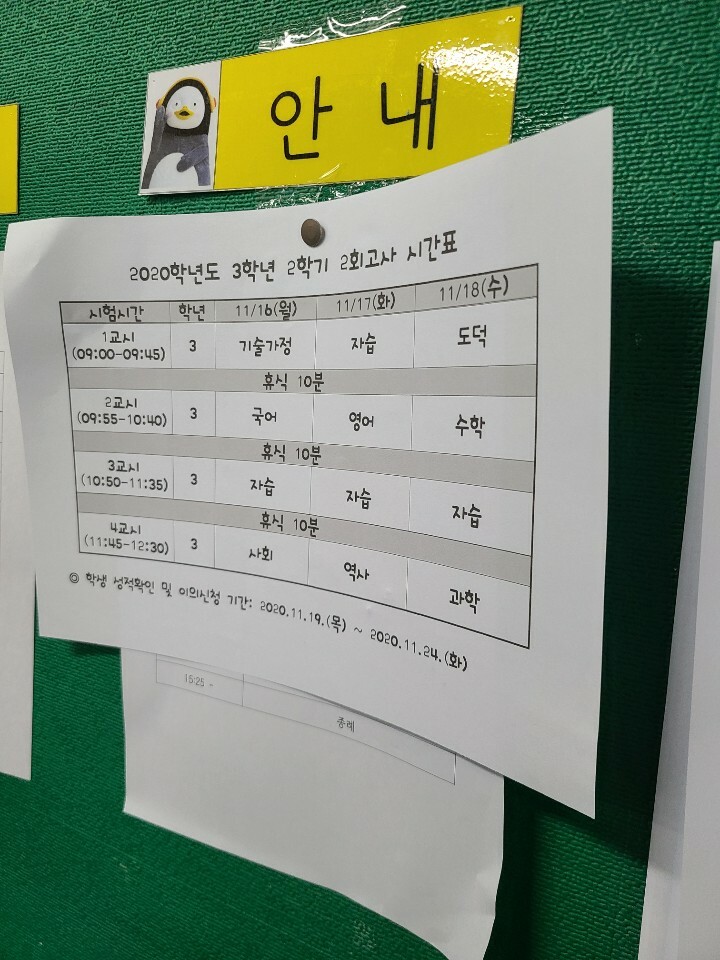 안 내
2020학년도 3학년 2학기 2회고사 시간표
시험시간 학년 11/16(월) 11/17(화) 11/18(수)
1교시 (09:00-09:45) 3 기술가정 자습 도덕
휴식 10분
2교시 (09:55-10:40) 3 국어 영어 수학
휴식 10분
3교시 (10:50-11:35) 3 자습 자습 자습
휴식 10분
4교시 (11:45-12:30) 3 사회 역사 과학
◎ 학생 성적확인 및 이의신청 기간: 2020.11.19.(목) ~ 2020.11.24.(화)
15:25 -
종례